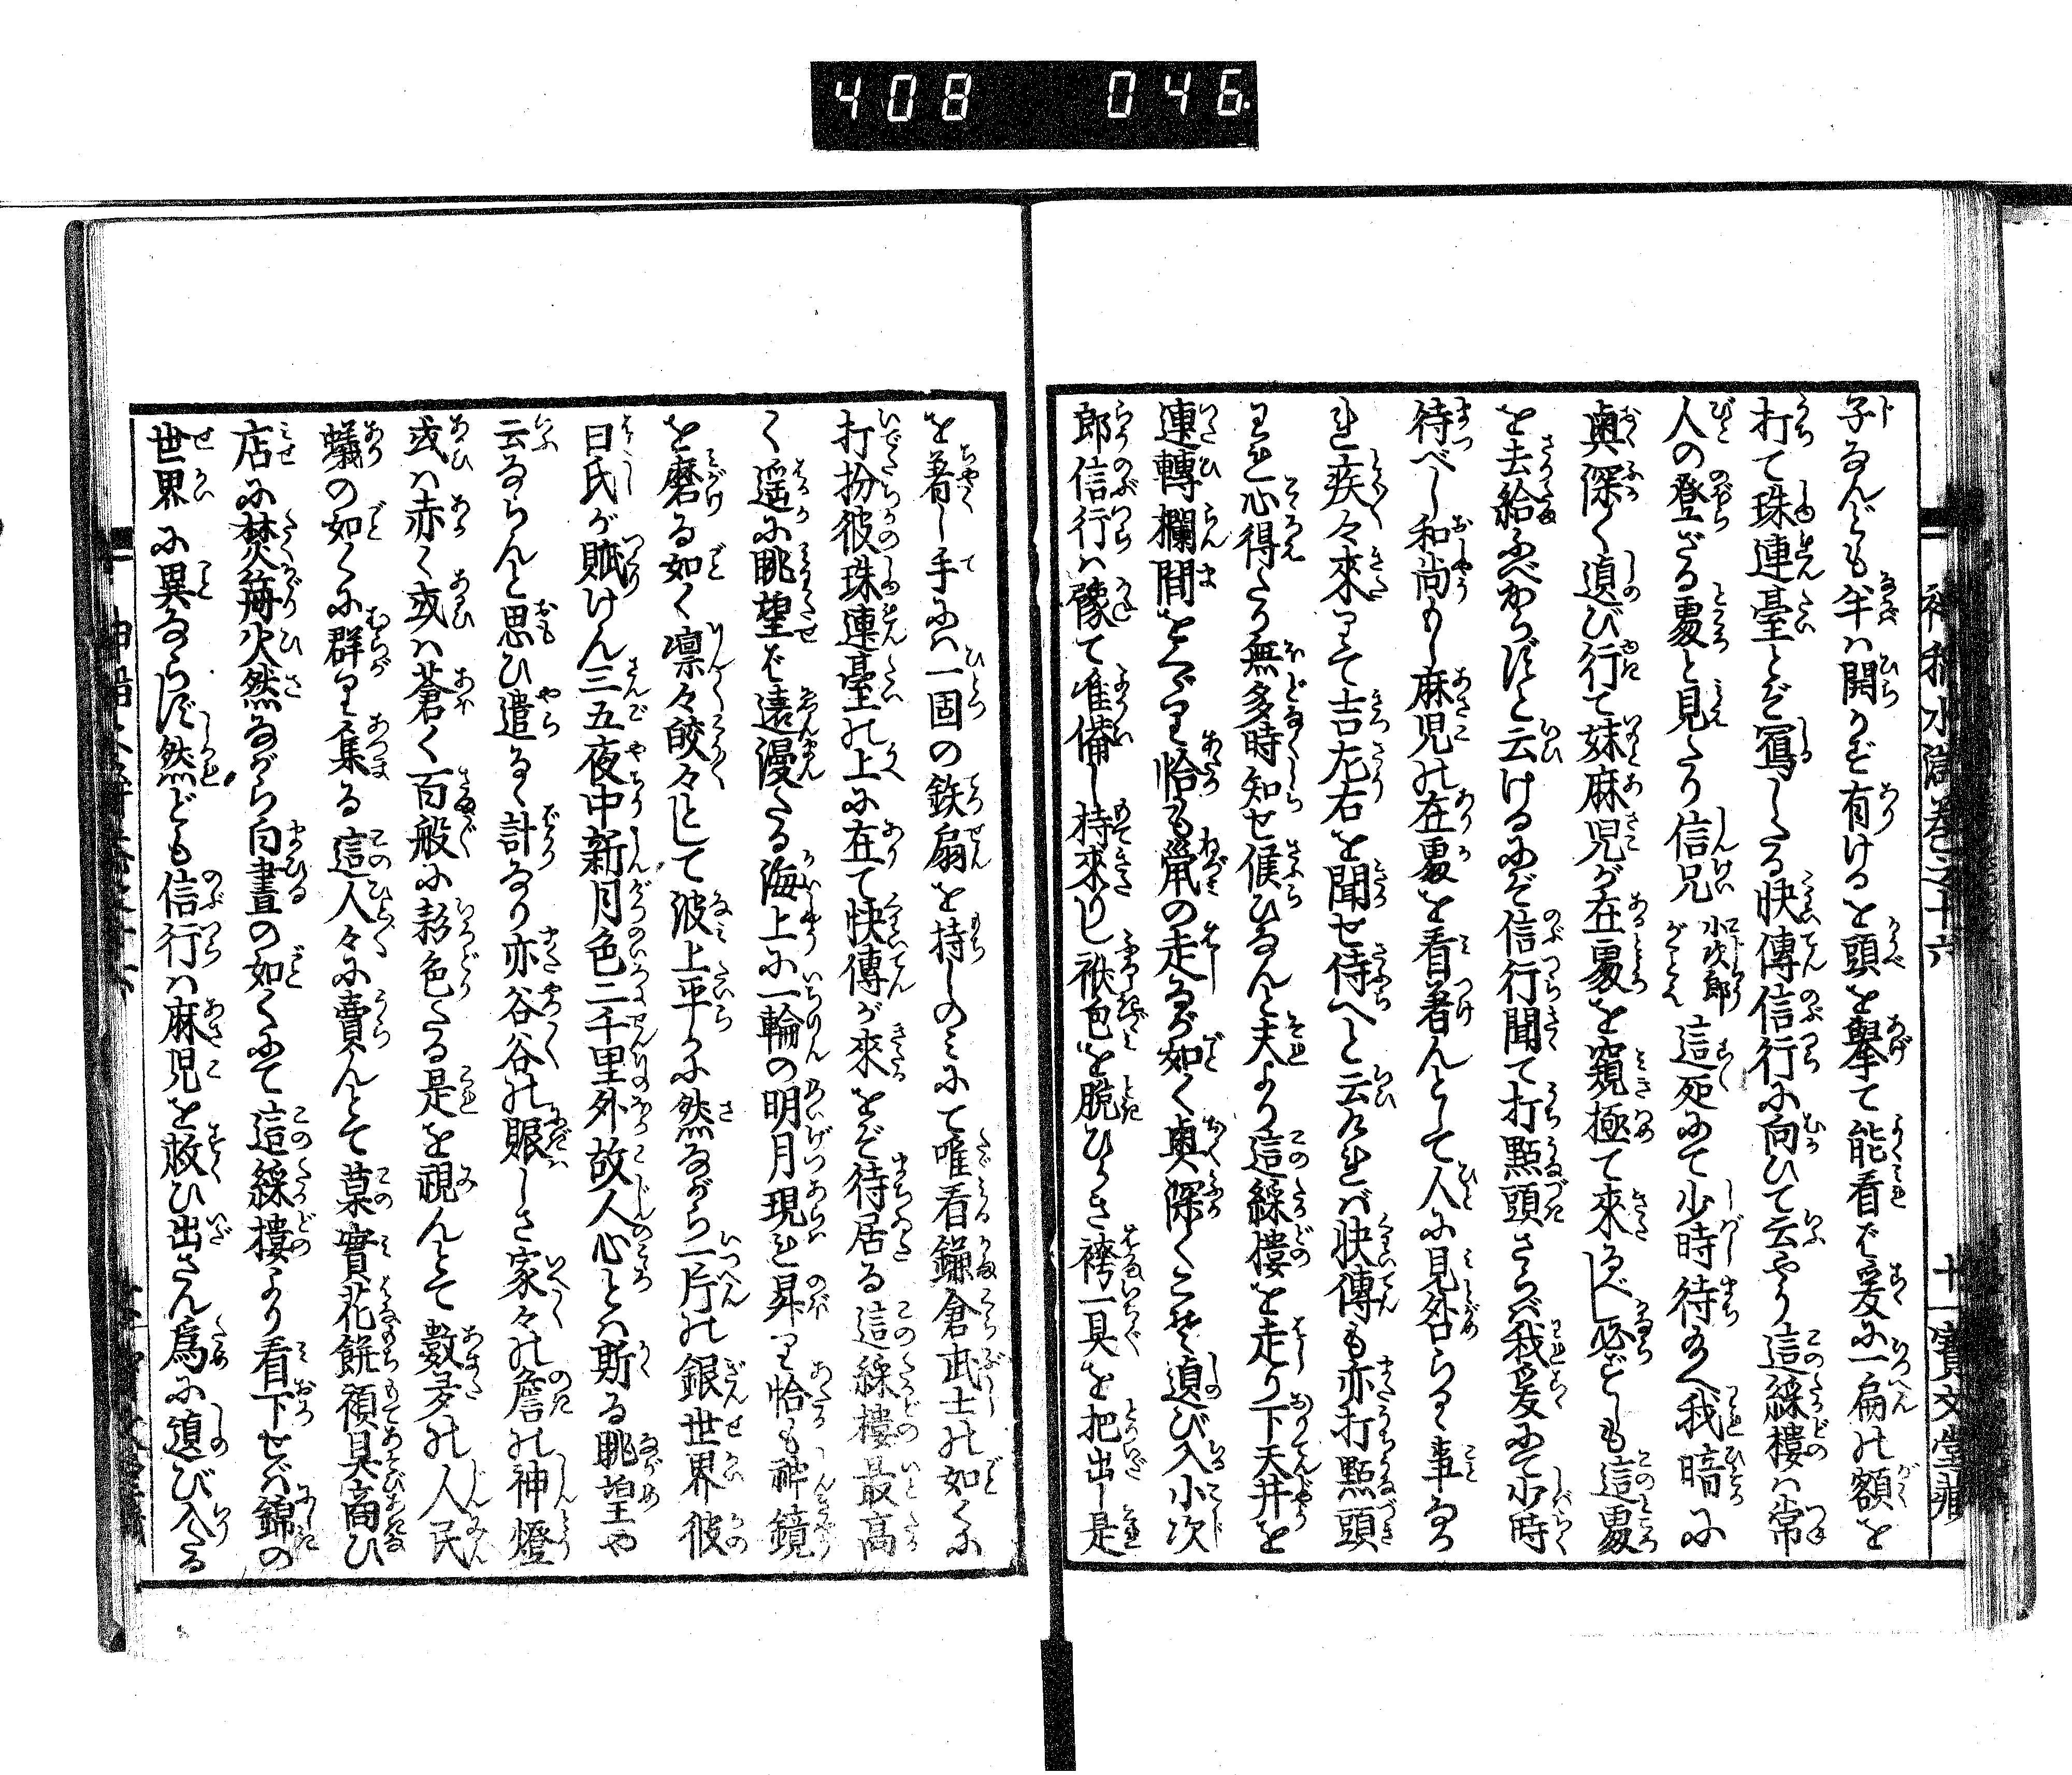 408 046.
子なんども半は開かず有けるを頭を擧て能看ば爰に一扁の額を
打て珠連臺とぞ寫したる快傳信行に向ひて云やう這綵樓は常
人の登ざる處と見えたり信兄 小次郎がこと也 這死にて少時待給へ我暗に
奥深く逭び行て妹麻児が在處を窺極て來るべし必ずしも這處
を去給ふべからずと云けるにぞ信行聞て打點頭さらば我爰にて少時
待べし和尚もし麻児の在處を看著んとして人に見咎らるゝ事なか
れ疾々來りて吉左右を聞せ侍へと云ければ快傳も亦打點頭
りと心得たり無多時知せ候ひなんと夫より這綵樓を走り下天井を
連轉欄間をくゞり恰も鼠の走るが如く奥深くこそ逭び入小次
郎信行は豫て准備し持來りし袱包を脱ひらき袴一具を把出し是
を着し手には一固の鉄扇を持しのみにて唯看鎌倉武士の如くに
打扮彼珠連臺の上に在て快傳が來をぞ待居る這綵樓最高
く遥に眺望ば遠漫たる海上に一輪の明月現れ昇り恰も神鏡
を磨る如く凛々皎々として波上平かに然ながら一片の銀世界彼
白氏が賦けん三五夜中新月色二千里外故人心とは斯る眺望や
云ならんと思ひ遣るゝ計なり亦谷谷の賑しさ家々の詹の神燈
或は赤く或は蒼く百般に彩色たる是を視んとて數多の人民
蟻の如くに群り集る這人々に賣んとて菓實花餅禎具商ひ
店に焚篝火然ながら白晝の如くにて這綵樓より看下せば錦の
世界に異ならず然ども信行は麻児を救ひ出さん爲に逭び入たる